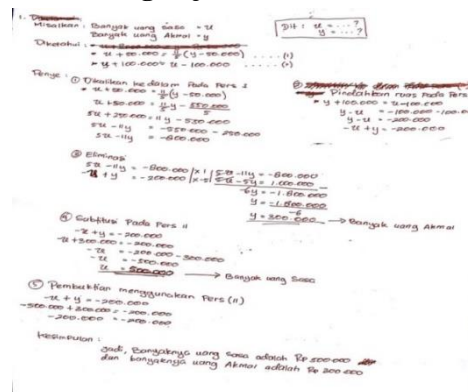 1. Misalkan : Banyak uang Saso = x
Banyak uang Akmal = y
Dit : x = ... ?
y = ... ?
Diketahui :
* x + 50.000 = 11/5 (y - 50.000) ..... (1)
* y + 100.000 = x - 100.000 ..... (2)
Penye :
① Dikalikan ke dalam Pada Pers 1
* x + 50.000 = 11/5 (y - 50.000)
x + 50.000 = 11/5 y - 550.000/5
5x + 250.000 = 11y - 550.000
5x - 11y = -550.000 - 250.000
5x - 11y = -800.000
Pindahkan ruas Pada Pers
* y + 100.000 = x - 100.000
y - x = -100.000 - 100.000
y - x = -200.000
-x + y = -200.000
③ Eliminasi
5x - 11y = -800.000 | x 1 | 5x - 11y = -800.000
-x + y = -200.000 | x -5 | 5x - 5y = 1.000.000
-6y = -1.800.000
y = -1.800.000
-6
y = 300.000 → Banyak uang Akmal
④ Subtitusi Pada Pers II
-x + y = -200.000
-x + 300.000 = -200.000
-x = -200.000 - 300.000
-x = -500.000
x = 500.000 → Banyak uang Saso
⑤ Pembuktian menggunakan Pers (11)
-x + y = -200.000
-500.000 + 300.000 = -200.000
-200.000 = -200.000
Kesimpulan :
Jadi, Banyaknya uang Saso adalah Rp 500.000
dan banyaknya uang Akmal adalah Rp 300.000